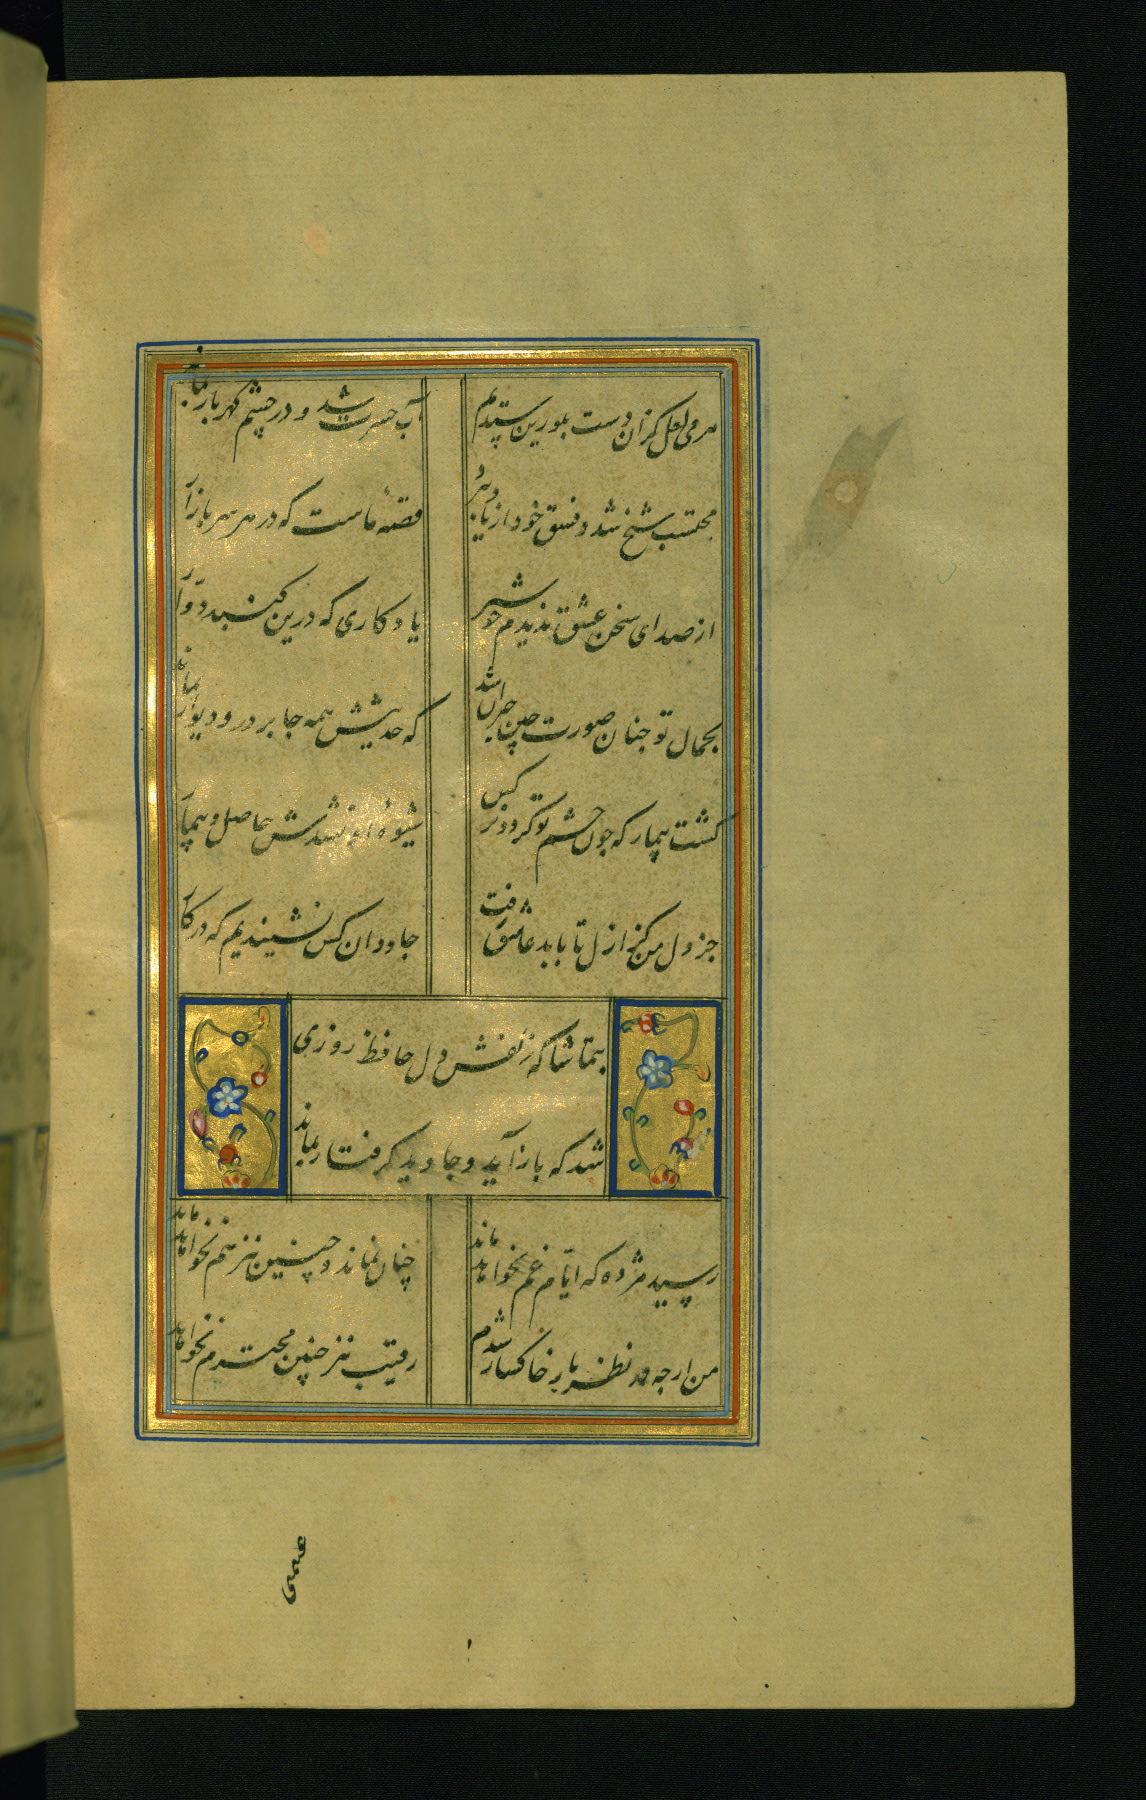 هر می لعل کزان دست بلورین ستدیم
آب حسرت شد و در چشم گهربار بماند
محتسب شیخ شد و فسق خود از یاد ببرد
قصهٔ ماست که در هر سر بازار
از صدای سخن عشق ندیدم خوشتر
یادگاری که درین گنبد دوار
بجمال تو چنان صورت چین حیران شد
که حدیثش همه جا بر در و دیوار بماند
گشت بیمار که چون چشم تو گردد نرگس
شیوهٔ او نشدش حاصل و بیمار
جز دل من کز ازل تا بابد عاشق رفت
جاودان کس نشنیدیم که در کار
بتماشا که زلفش دل حافظ روزی
شد که بازآید و جاوید گرفتار بماند
رسید مژده که ایام غم نخواهد ماند
چنان نماند و چنین نیز هم نخواهد ماند
من ارچه در نظر یار خاکسار شدم
رقیب نیز چنین محترم نخواهد ماند